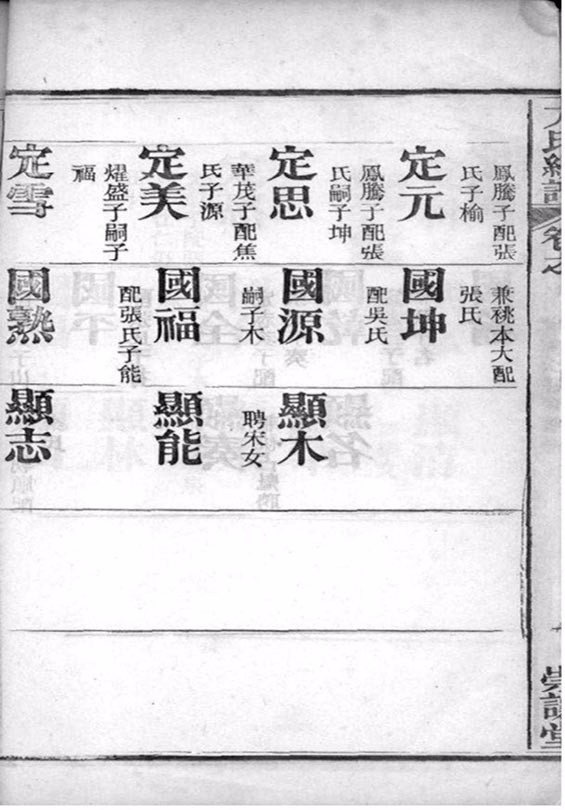 卷之
鳳騰子配張
氏子榆
定元
鳳騰子配張
氏嗣子坤
定思
華茂子配焦
氏子源
定美
燿盛子嗣子
福
定雪
兼祧本大配
張氏
國坤
配吳氏
國源
嗣子木
國福
配張氏子能
國熟
顯木
聘宋女
顯能
顯志